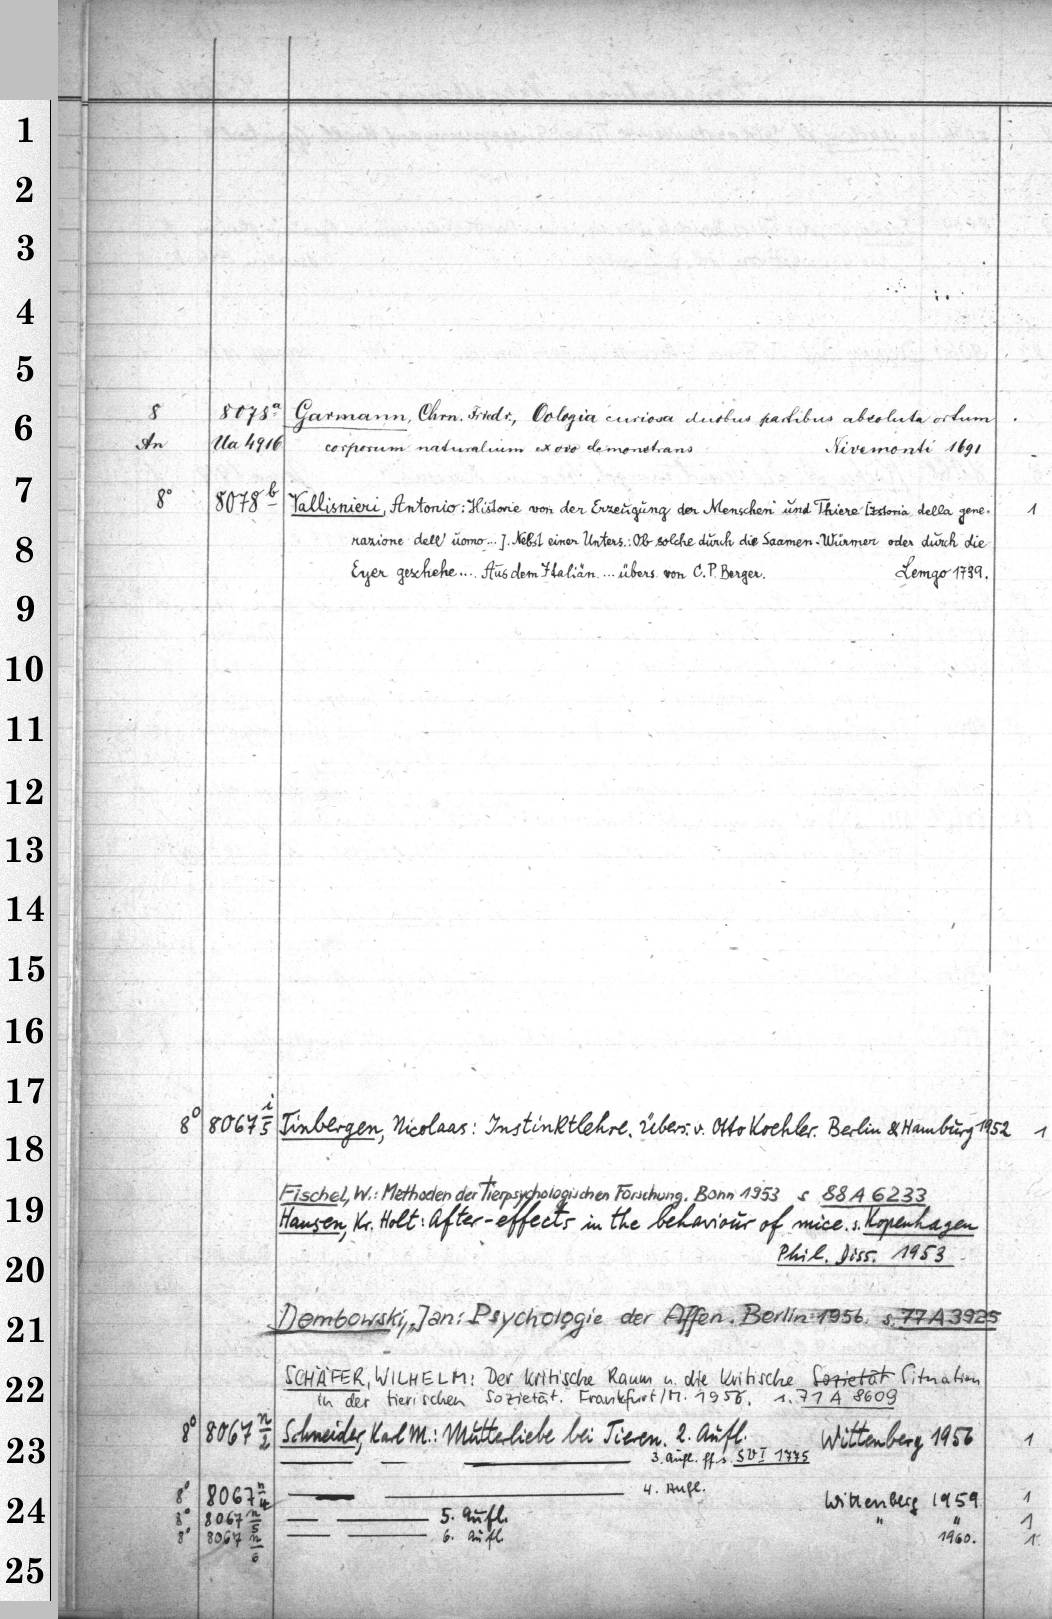 1
2
3
4
5
6
7
8
9
10
11
12
13
14
15
16
17
18
19
20
21
22
23
24
25
8 8078a Garmann, Chrn. Friedr., Oologia curiosa duobus partibus absoluta ortum
An Ua 4916 corporum naturalium ex ovo demonstrans Nivemonti 1691
8° 8078 b Vallisnieri, Antonio: Historie von der Erzeugung der Menschen und Thiere [Istoria della gene- 1
razione dell' uomo ... ]. Nebst einer Unters.: Ob solche durch die Saamen-Würmer oder durch die
Eyer geschehe .... Aus dem Italiän. ... übers. von C. P. Berger. Lemgo 1739.
8° 8067 i/5 Tinbergen, Nicolaas: Instinktlehre. Übers. v. Otto Koehler. Berlin & Hamburg 1952 1
Fischel, W.: Methoden der Tierpsychologischen Forschung. Bonn 1953 s 88 A 6233
Hansen, Kr. Holt: After-effects in the behaviour of mice. s. Kopenhagen
Phil. Diss. 1953
Dembowski, Jan: Psychologie der Affen. Berlin 1956. s. 77 A 3925
SCHÄFER, WILHELM: Der kritische Raum u. die kritische Sozietät Situation
in der tierischen Sozietät. Frankfurt/M. 1956. s. 71 A 8609
8° 8067 n/2 Schneider, Karl M.: Mutterliebe bei Tieren. 2. Aufl. Wittenberg 1956 1
3. Aufl. ff s. SVI 1775
8° 8067 n/4 4. Aufl. Wittenberg 1959 1
8° 8067 n/5 5. Aufl. " " 1
8° 8067 n/6 6. Aufl. 1960. 1